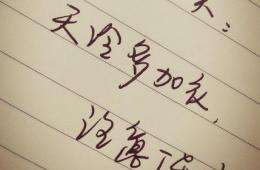 天:
天冷多加衣,
注意